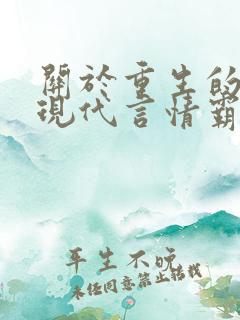 關於重生的
現代言情霸
平生不晚
未经同意禁止转载